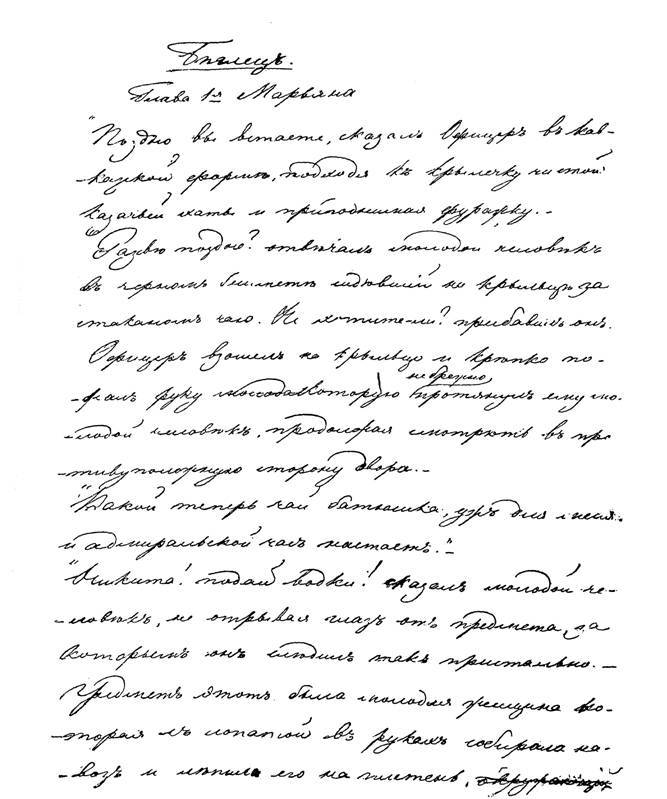 Бѣглецъ.
Глава 1я Марьяна
"Поздно вы встаете, сказалъ Офицеръ въ кав-
-казской формѣ, подходя къ крылечку чистой
казачьей хаты и приподнимая фуражку. -
"Развѣ поздно? отвѣчалъ молодой человѣкъ
въ черномъ бешметѣ сидѣвшій на крыльцѣ за
стаканомъ чаю. Не хотите-ли? прибавилъ онъ.
Офицеръ взошелъ на крыльцо и крѣпко по-
-жалъ руку которую небрежно протянулъ ему мо-
-лодой человѣкъ, продолжая смотрѣть въ про
-тивуположную сторону двора. -
"Какой теперь чай батюшка, ужъ для меня
и адмиральской часъ настаетъ." -
"Никита! подай водки! сказалъ молодой че-
-ловѣкъ, не отрывая глазъ отъ предмета, за
которымъ онъ слѣдилъ такъ пристально. -
Предметъ этотъ была молодая женщина ко-
-торая съ лопатой въ рукахъ собирала на-
-возъ и лѣпила его на плетень,